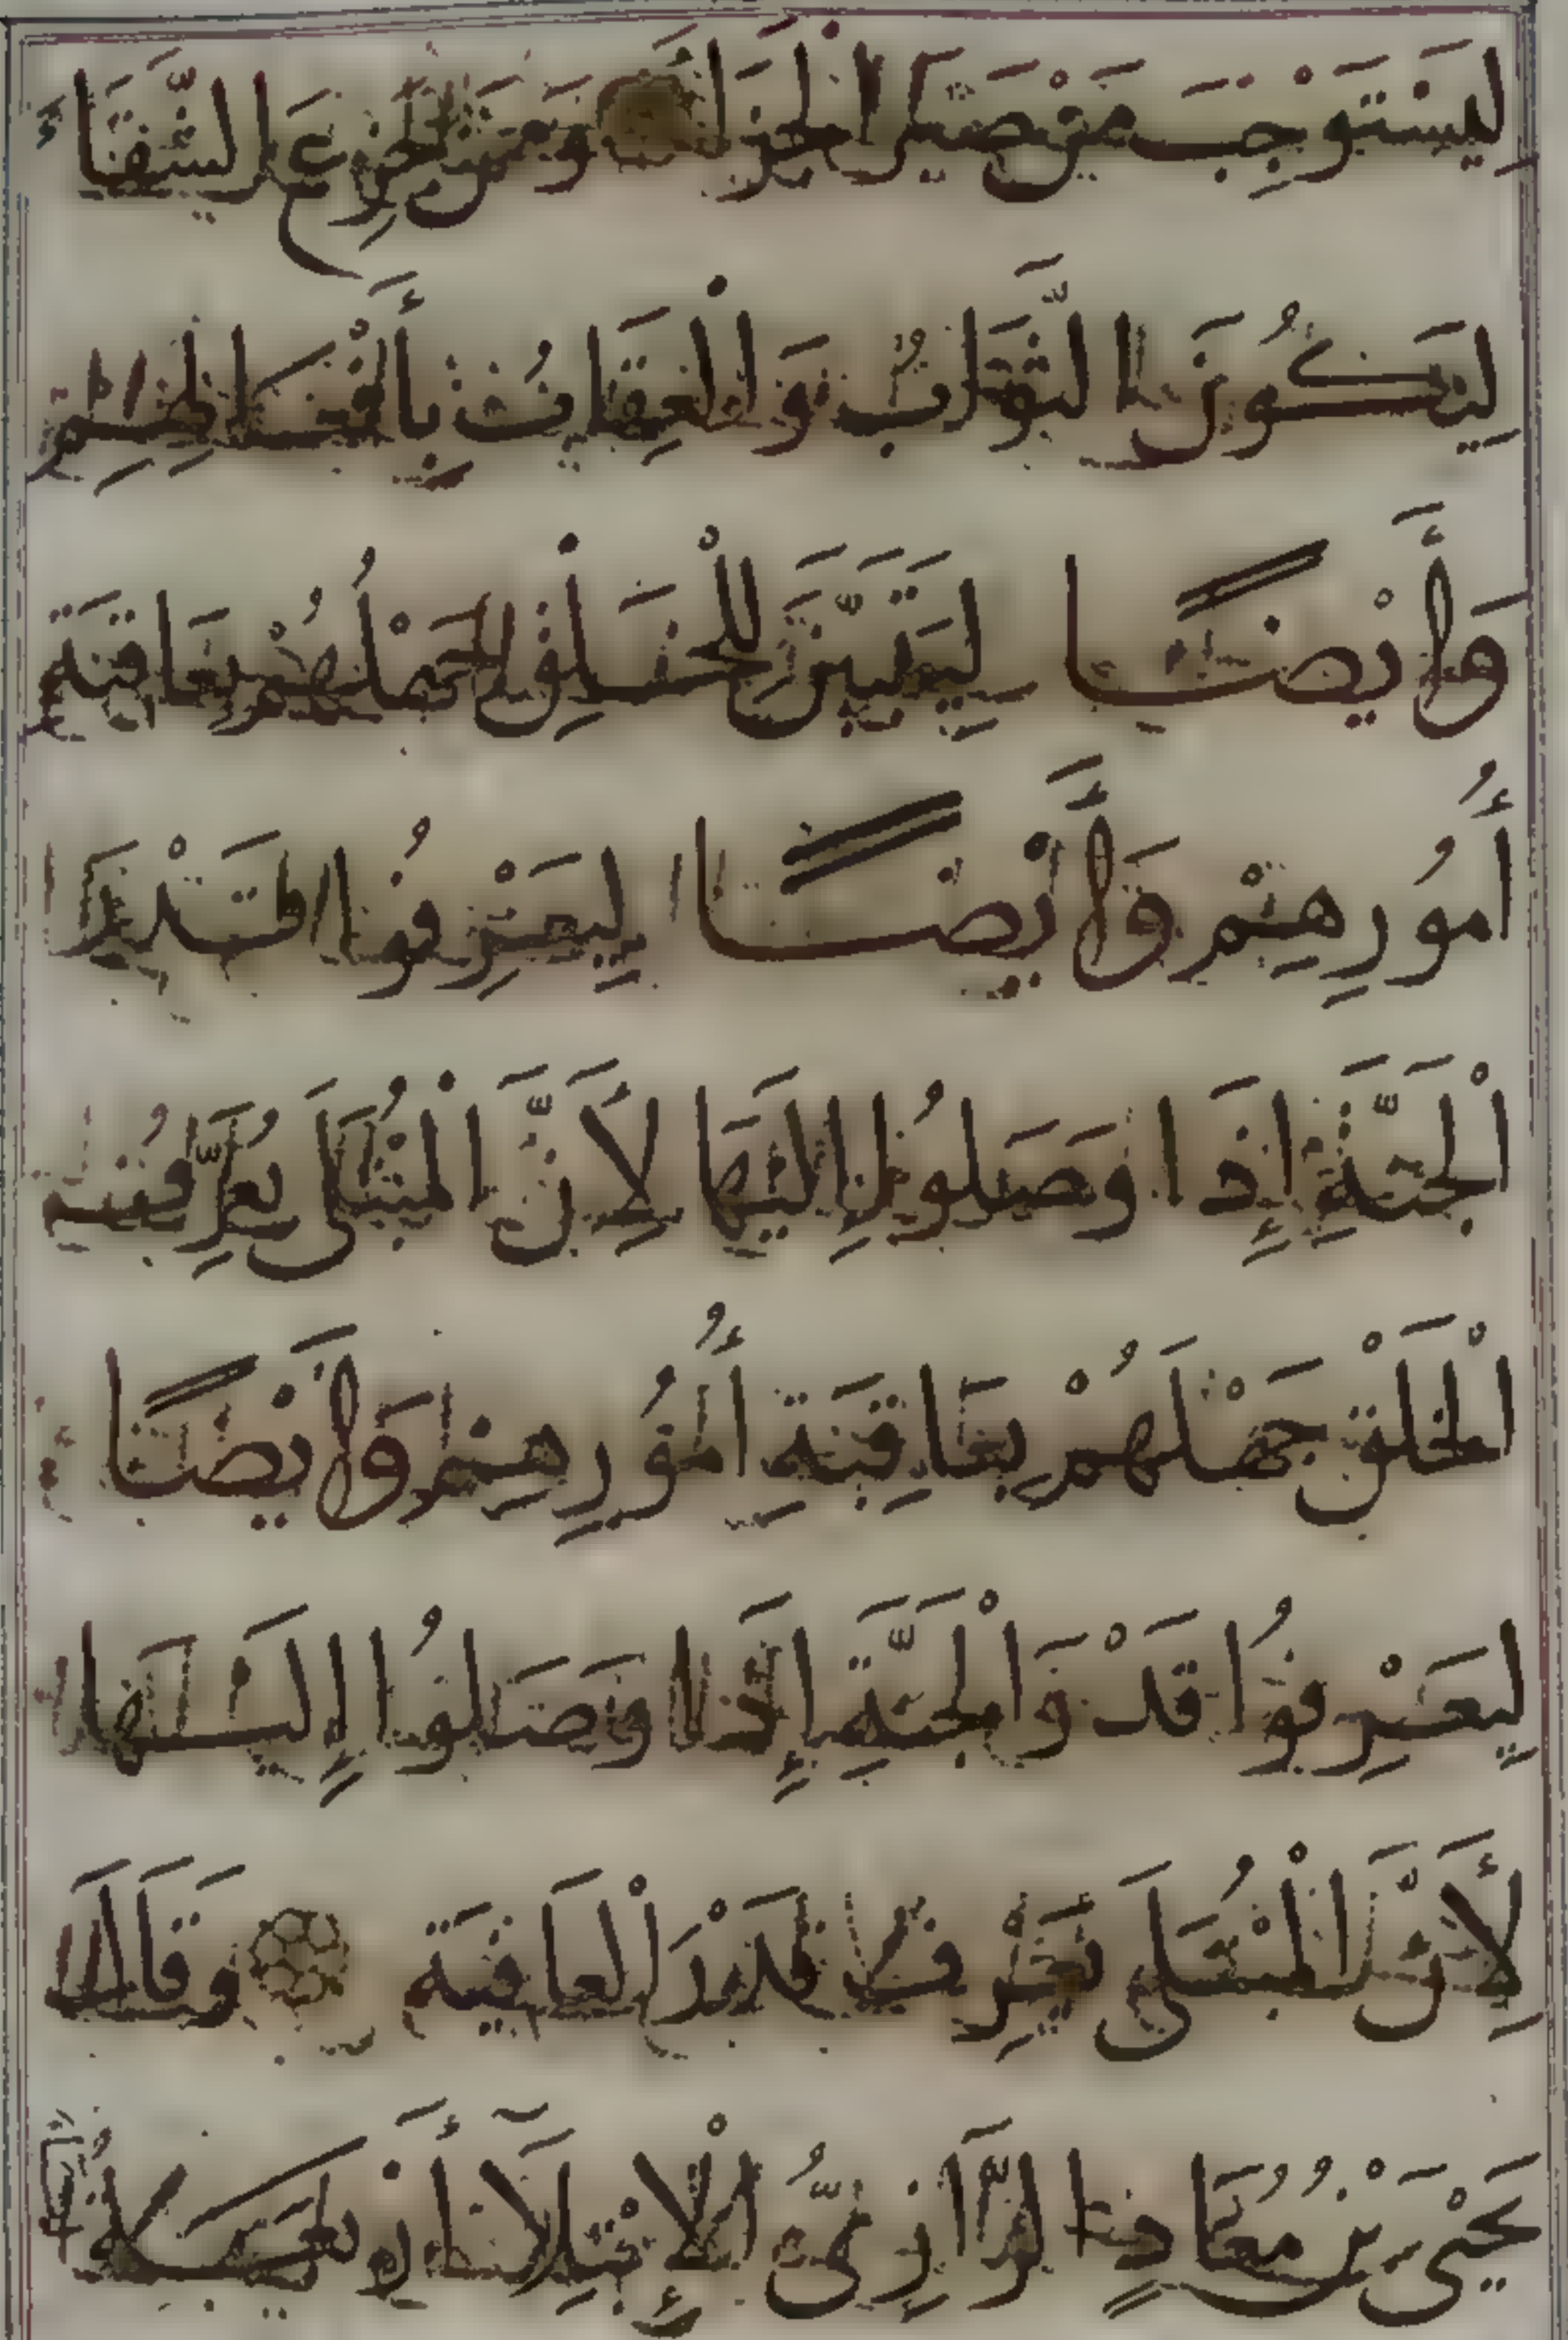 لِيَسْتَوْجِبَ مَنْ صَبَرَ الْجَزَاءَ وَمَنْ جَزِعَ الشَّقَاءَ
لِيَكُونَ الثَّوَابُ وَالْعِقَابُ بِأَفْعَالِهِمْ
وَأَيْضًا لِيَتَبَيَّنَ لِلْخَلْقِ جَهْلُهُمْ بِعَاقِبَةِ
أُمُورِهِمْ وَأَيْضًا لِيَعْرِفُوا قَدْرَ
الْجَنَّةِ إِذَا وَصَلُوا إِلَيْهَا لِأَنَّ الْمُبْتَلَى يُعَرِّفُ
الْخَلْقَ جَهْلَهُمْ بِعَاقِبَةِ أُمُورِهِمْ وَأَيْضًا
لِيَعْرِفُوا قَدْرَ الْجَنَّةِ إِذَا وَصَلُوا إِلَيْهَا
لِأَنَّ الْمُبْتَلَى يَعْرِفُ قَدْرَ الْعَافِيَةِ وَقَالَ
يَحْيَى بْنُ مُعَاذٍ الرَّازِيُّ الْإِبْتِلَاءُ